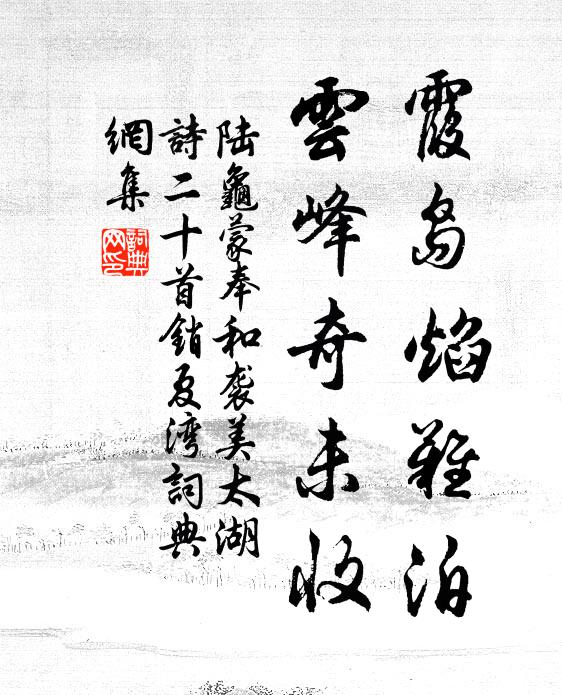 霞島焰難泊
雲峰奇未收
陆龜蒙奉和袭美太湖
詩二十首銷夏湾詞典
網集
詞典网印